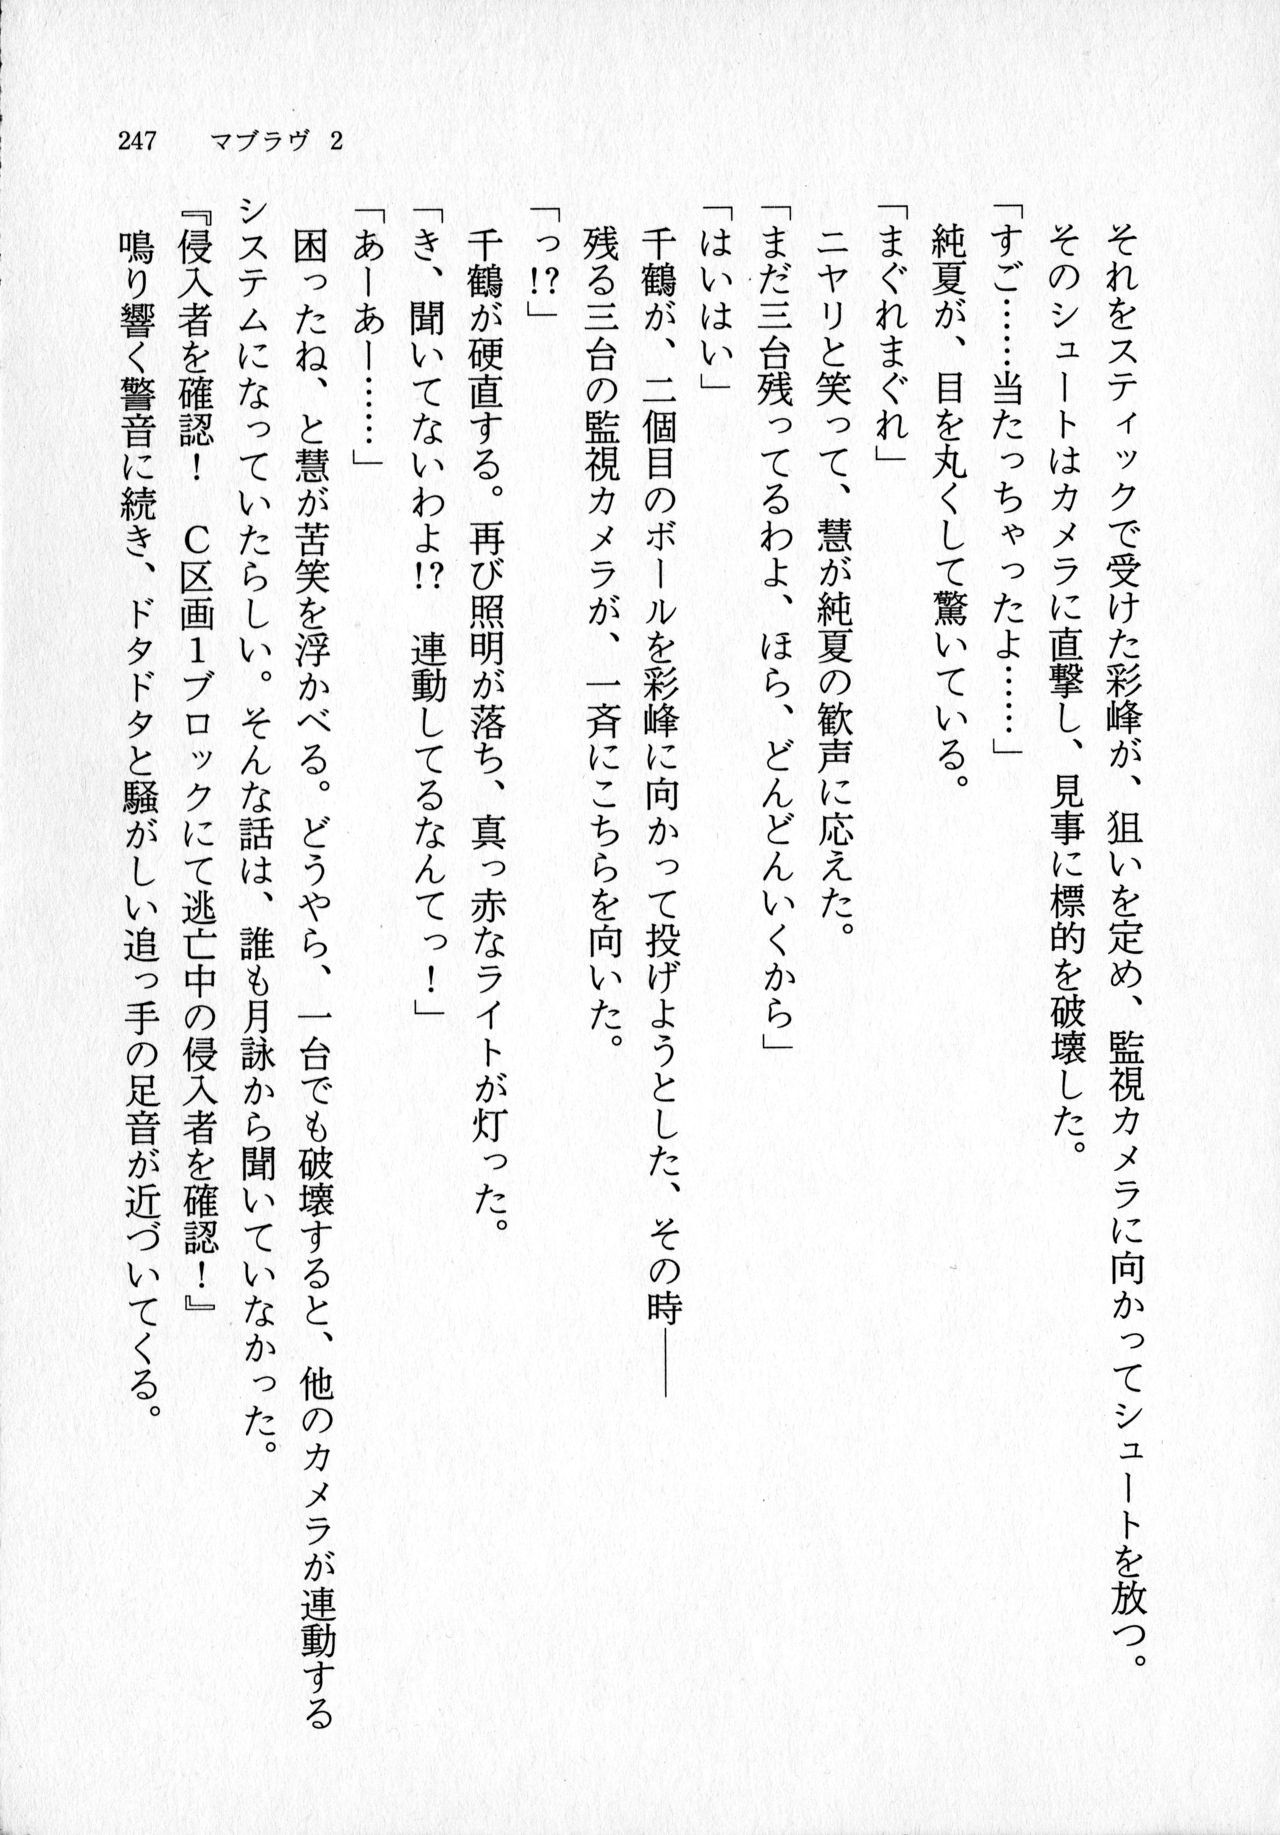 247　マブラヴ 2
　それをスティックで受けた彩峰が、狙いを定め、監視カメラに向かってシュートを放つ。
　そのシュートはカメラに直撃し、見事に標的を破壊した。
「すご……当たっちゃったよ……」
　純夏が、目を丸くして驚いている。
「まぐれまぐれ」
　ニヤリと笑って、慧が純夏の歓声に応えた。
「まだ三台残ってるわよ、ほら、どんどんいくから」
「はいはい」
　千鶴が、二個目のボールを彩峰に向かって投げようとした、その時――
　残る三台の監視カメラが、一斉にこちらを向いた。
「っ!?」
　千鶴が硬直する。再び照明が落ち、真っ赤なライトが灯った。
「き、聞いてないわよ!?　連動してるなんてっ！」
「あーあー……」
　困ったね、と慧が苦笑を浮かべる。どうやら、一台でも破壊すると、他のカメラが連動する
システムになっていたらしい。そんな話は、誰も月詠から聞いていなかった。
『侵入者を確認！　Ｃ区画１ブロックにて逃亡中の侵入者を確認！』
　鳴り響く警音に続き、ドタドタと騒がしい追っ手の足音が近づいてくる。